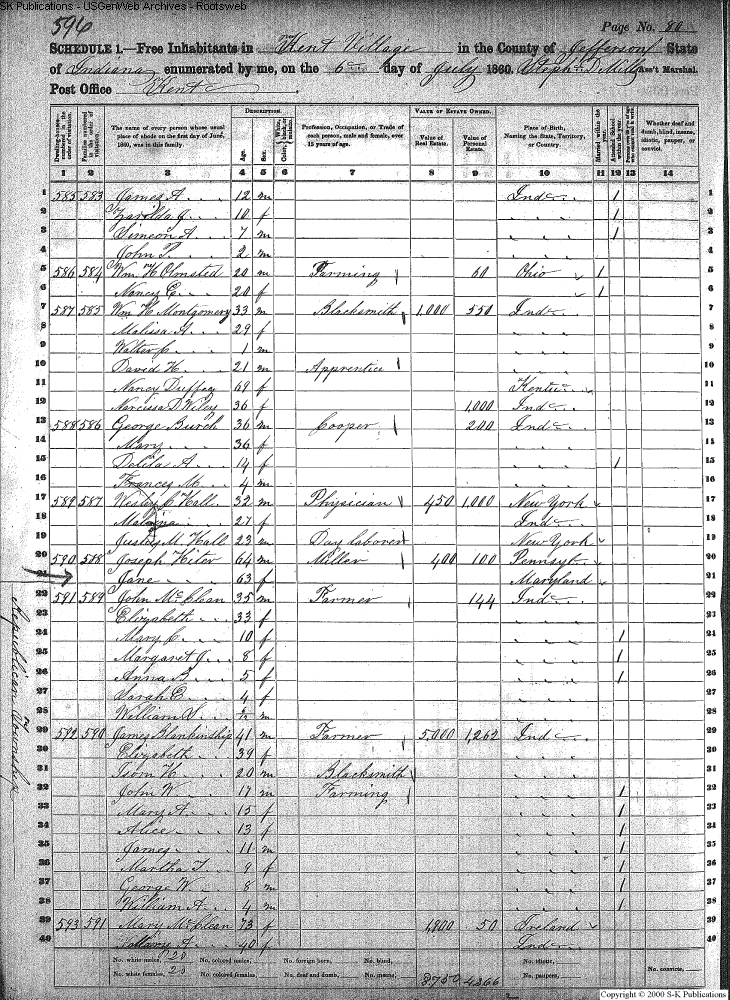 SK Publications - USGenWeb Archives - Rootsweb
596 Page No. 80
SCHEDULE 1.—Free Inhabitants in Kent Village in the County of Jefferson State
of Indiana enumerated by me, on the 6 day of July 1860. Ass't Marshal.
Post Office Kent
DESCRIPTION. VALUE OF ESTATE OWNED.
Dwelling-houses—numbered in the order of visitation. Families numbered in the order of visitation. The name of every person whose usual place of abode on the first day of June, 1860, was in this family. Age. Sex. Color, White, black, or mulatto. Profession, Occupation, or Trade of each person, male and female, over 15 years of age. Value of Real Estate. Value of Personal Estate. Place of Birth, Naming the State, Territory, or Country. Married within the year. Attended School within the year. Whether deaf and dumb, blind, insane, idiotic, pauper, or convict.
1 2 3 4 5 6 7 8 9 10 11 12 13 14
1 585 583 James A 12 m Ind / 1
2 J. 10 f " / 2
3 Simeon A 7 m " / 3
4 John T. 2 m " 4
5 586 584 Wm. H Olmsted 20 m Farming 60 Ohio / 5
6 Nancy E. 20 f " / 6
7 587 585 Wm H Montgomery 33 m Blacksmith 1,000 550 Ind 7
8 Melissa A. 29 f " 8
9 Walter 1 m " 9
10 David H. 21 m Apprentice " 10
11 Nancy Duffey 69 f Kentuc 11
12 Narcissa D Wiley 36 f 1,000 Ind 12
13 588 586 George Burch 36 m Cooper 200 Ind 13
14 Mary 36 f " 14
15 Delila A 14 f " / 15
16 Frances M 4 m " 16
17 589 587 Wesley C. Hall 32 m Physician 450 1,000 New York 17
18 27 f Ind 18
19 Justus M. Hall 23 m Day laborer New York 19
20 590 588 Joseph Hiter 64 m Miller 400 100 Pennsyl 20
21 Jane 63 f Maryland 21
22 591 589 John McClean 35 m Farmer 144 Ind 22
23 Elizabeth 33 f " 23
24 Mary C. 10 f " / 24
25 Margaret J. 8 f " / 25
26 Anna B. 5 f " / 26
27 Sarah E. 4 f " 27
28 William S. m " 28
29 592 590 James Blankinship 41 m Farmer 5,000 1,262 Ind 29
30 Elizabeth 39 f " 30
31 Isom H 20 m Blacksmith " 31
32 John W. 17 m Farming " / 32
33 Mary A. 15 f " / 33
34 Alice 13 f " / 34
35 James 11 m " / 35
36 Martha T. 9 f " / 36
37 George W. 8 m " / 37
38 William A. 4 m " / 38
39 593 591 Mary McClean 73 f 1,800 50 Ireland 39
40 A. 40 f Ind 40
No. white males, 20 No. colored males, No. foreign born, No. blind, No. idiotic,
No. white females, 20 No. colored females, No. deaf and dumb, No. insane, 8750 4366 No. paupers, No. convicts,
Republican Township
Copyright © 2000 S-K Publications